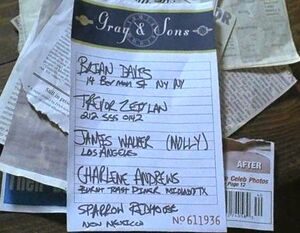 Gray & Sons
BRIAN DAVIS
NY NY
TREVOR ZEITLAN
212 555 0142
JAMES WALKER (MOLLY)
LOS ANGELES
CHARLENE ANDREWS
BURNT TOAST DINER MIDLAND TX
SPARROW REDHOUSE
NEW MEXICO
Nº 611936
AFTER
Celeb Photos
Page 12